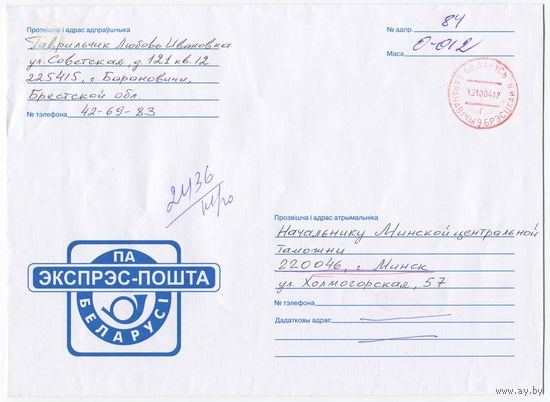 Прозвішча і адрас адпраўшчыка
Гаврильчик Любовь Ивановна
ул. Советская, д. 121 кв. 12
225415, г. Барановичи,
Брестской обл.
№ тэлефона 42-69-83
№ адпр. 84
Маса 0-012
БЕЛАРУСЬ
БАРАНАВІЧЫ 9 БРЭСЦКАЙ В
13100417
Г
2436
Прозвішча і адрас атрымальніка
Начальнику Минской центральной
Таможни
220046, г. Минск
ул. Холмогорская, 57
№ тэлефона
Дадатковы адрас
ПА
ЭКСПРЭС-ПОШТА
БЕЛАРУСІ
www.ay.by